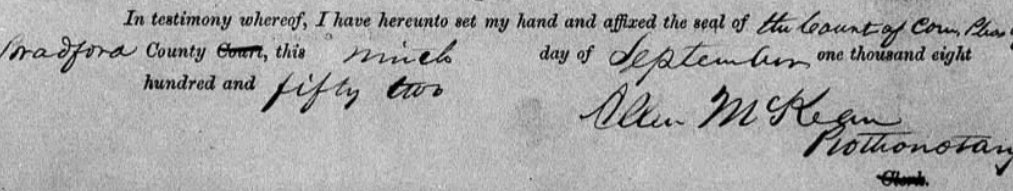 In testimony whereof, I have hereunto set my hand and affixed the seal of the Court of Com. Pleas
Bradford County Court, this ninth day of September one thousand eight
hundred and fifty two
Allen McKean
Prothonotary
Clerk.